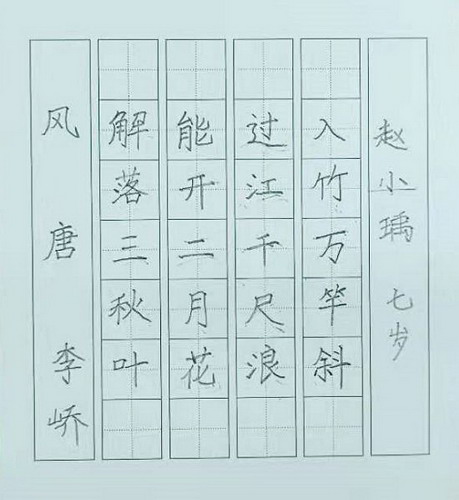 风 唐 李峤
解落三秋叶
能开二月花
过江千尺浪
入竹万竿斜
赵小瑀 七岁